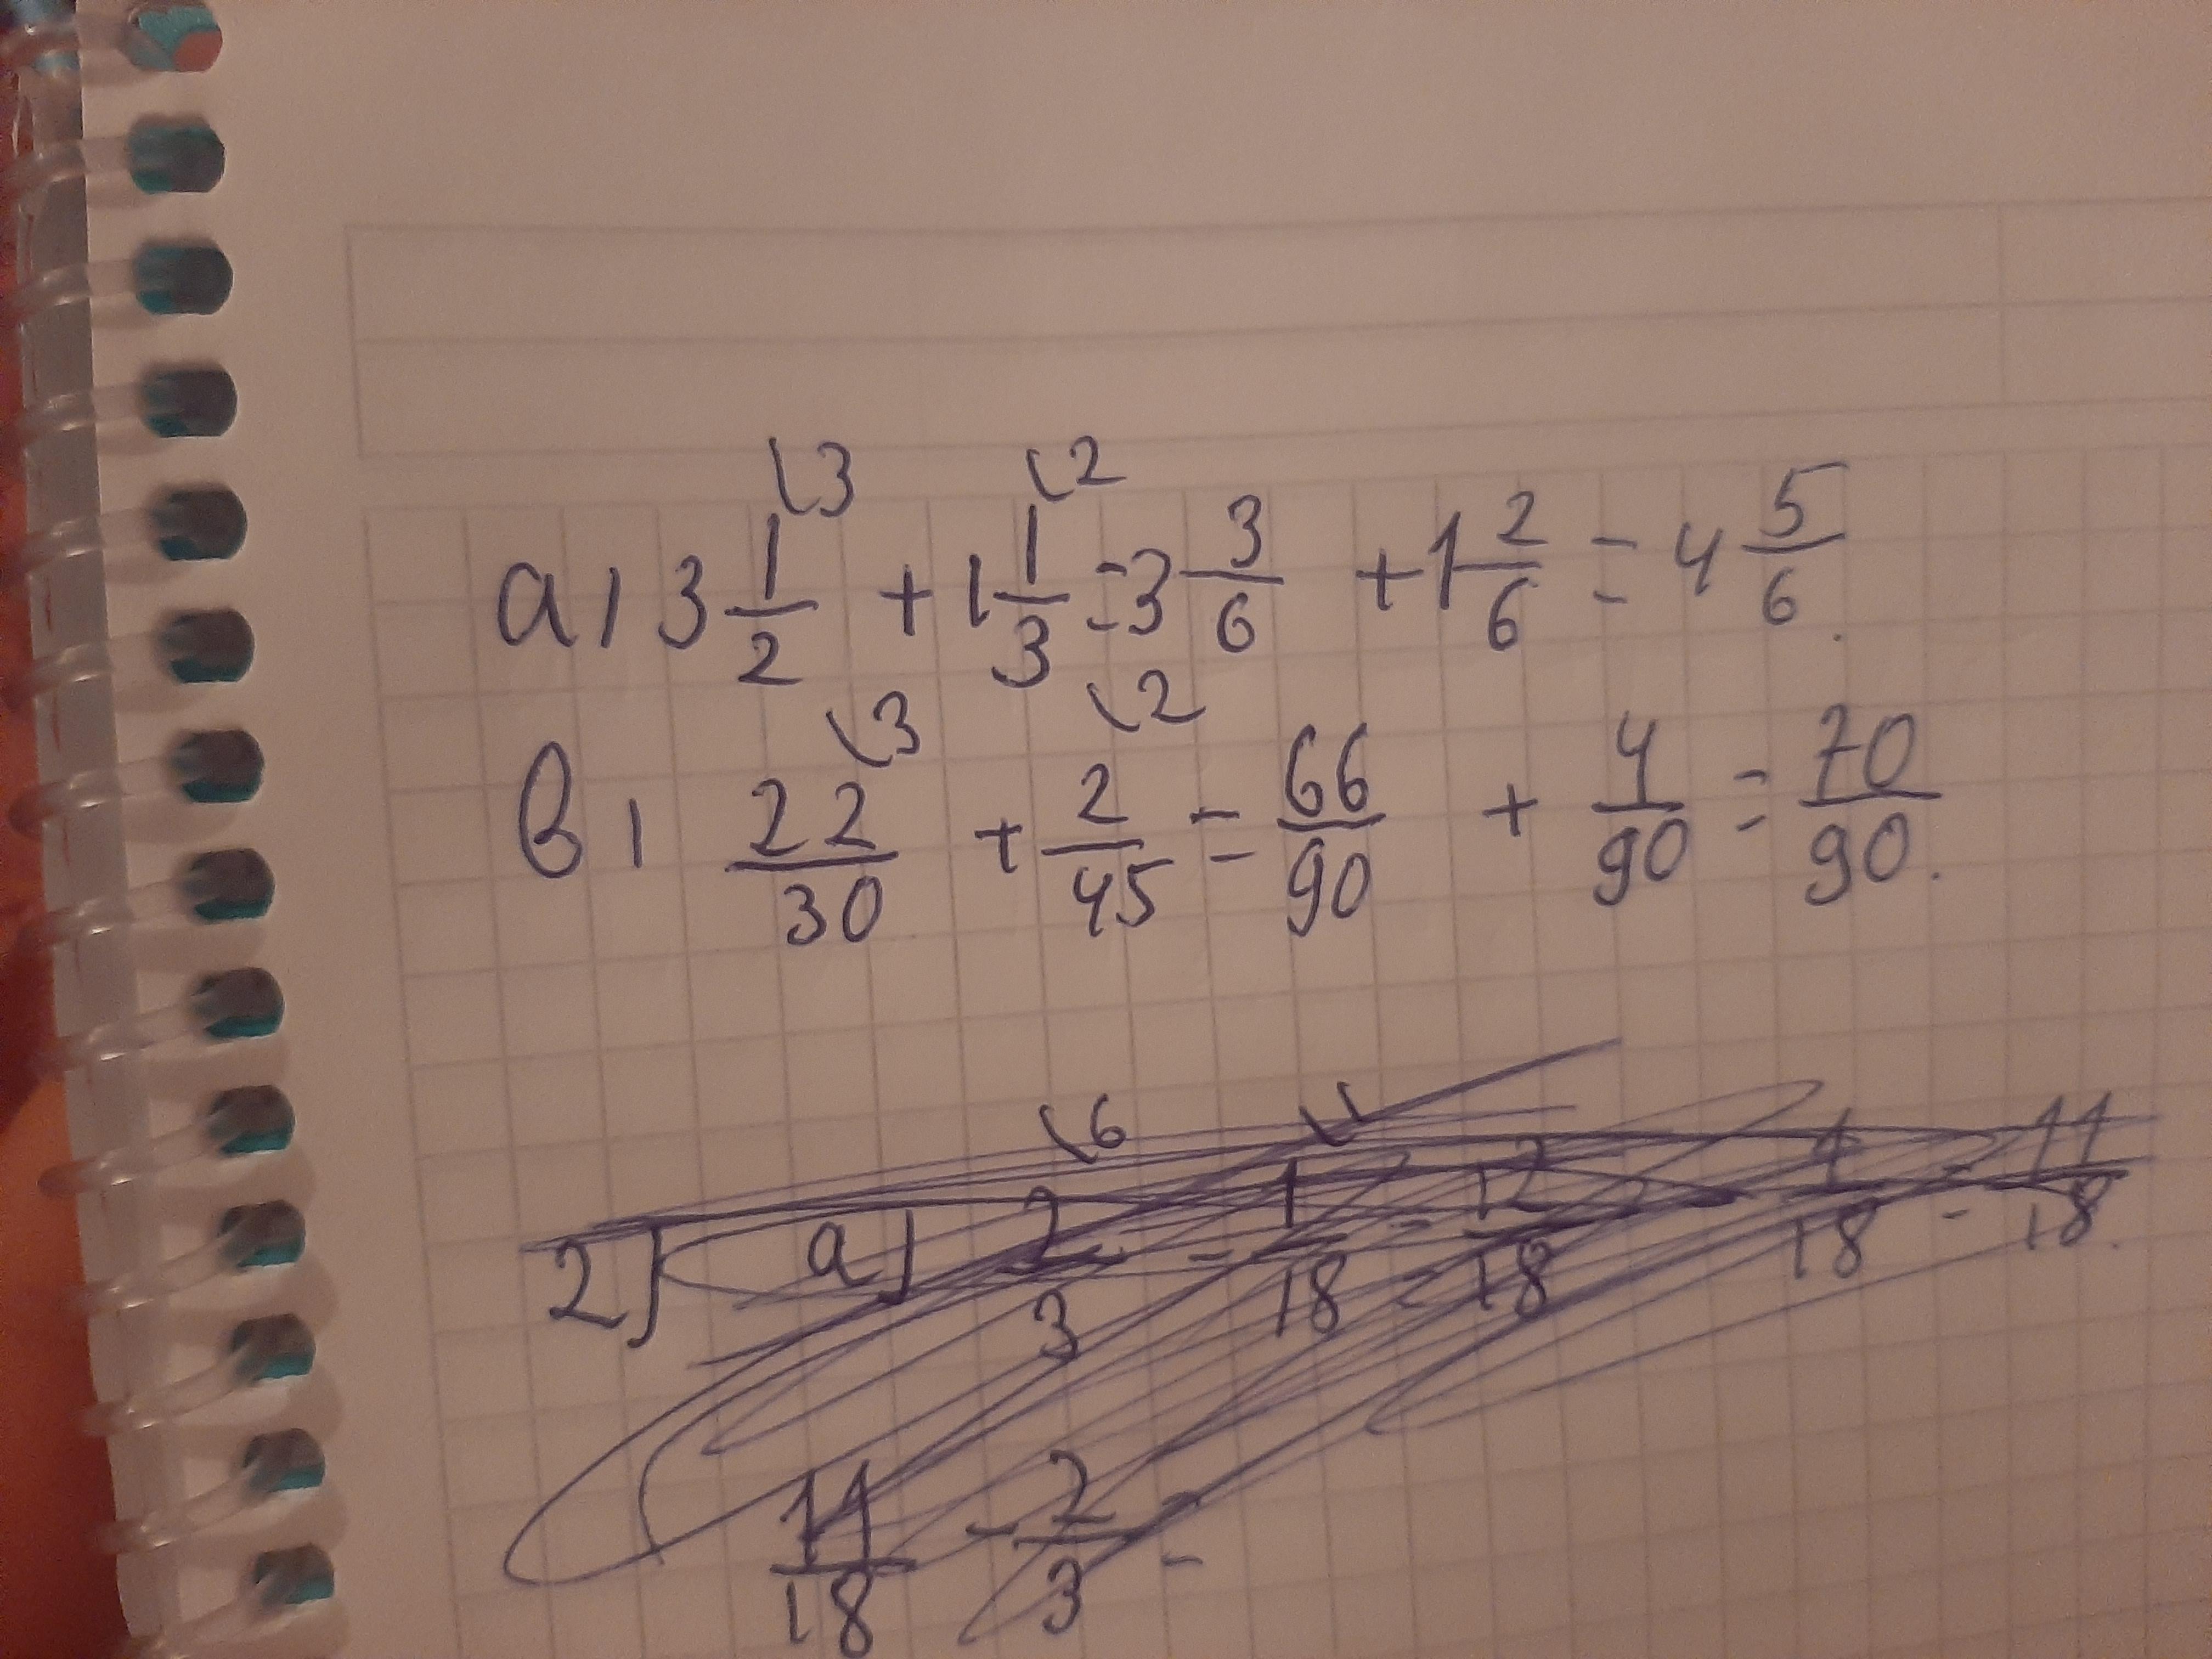 \3 \2
а) 3 1/2 + 1 1/3 = 3 3/6 + 1 2/6 = 4 5/6.
\3 \2
в) 22/30 + 2/45 = 66/90 + 4/90 = 70/90.
\6 \1
2) а) 2/3 - 1/18 = 12/18 - 1/18 = 11/18.
11/18 - 2/3 =